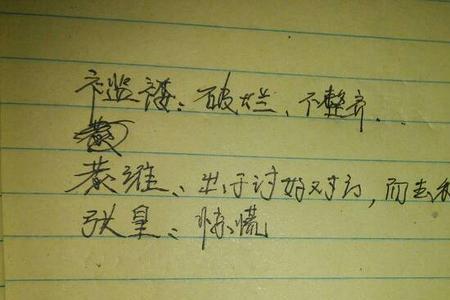 褴褛：破烂、不整齐..
恭维：出于讨好对方，而去
张皇：惊慌